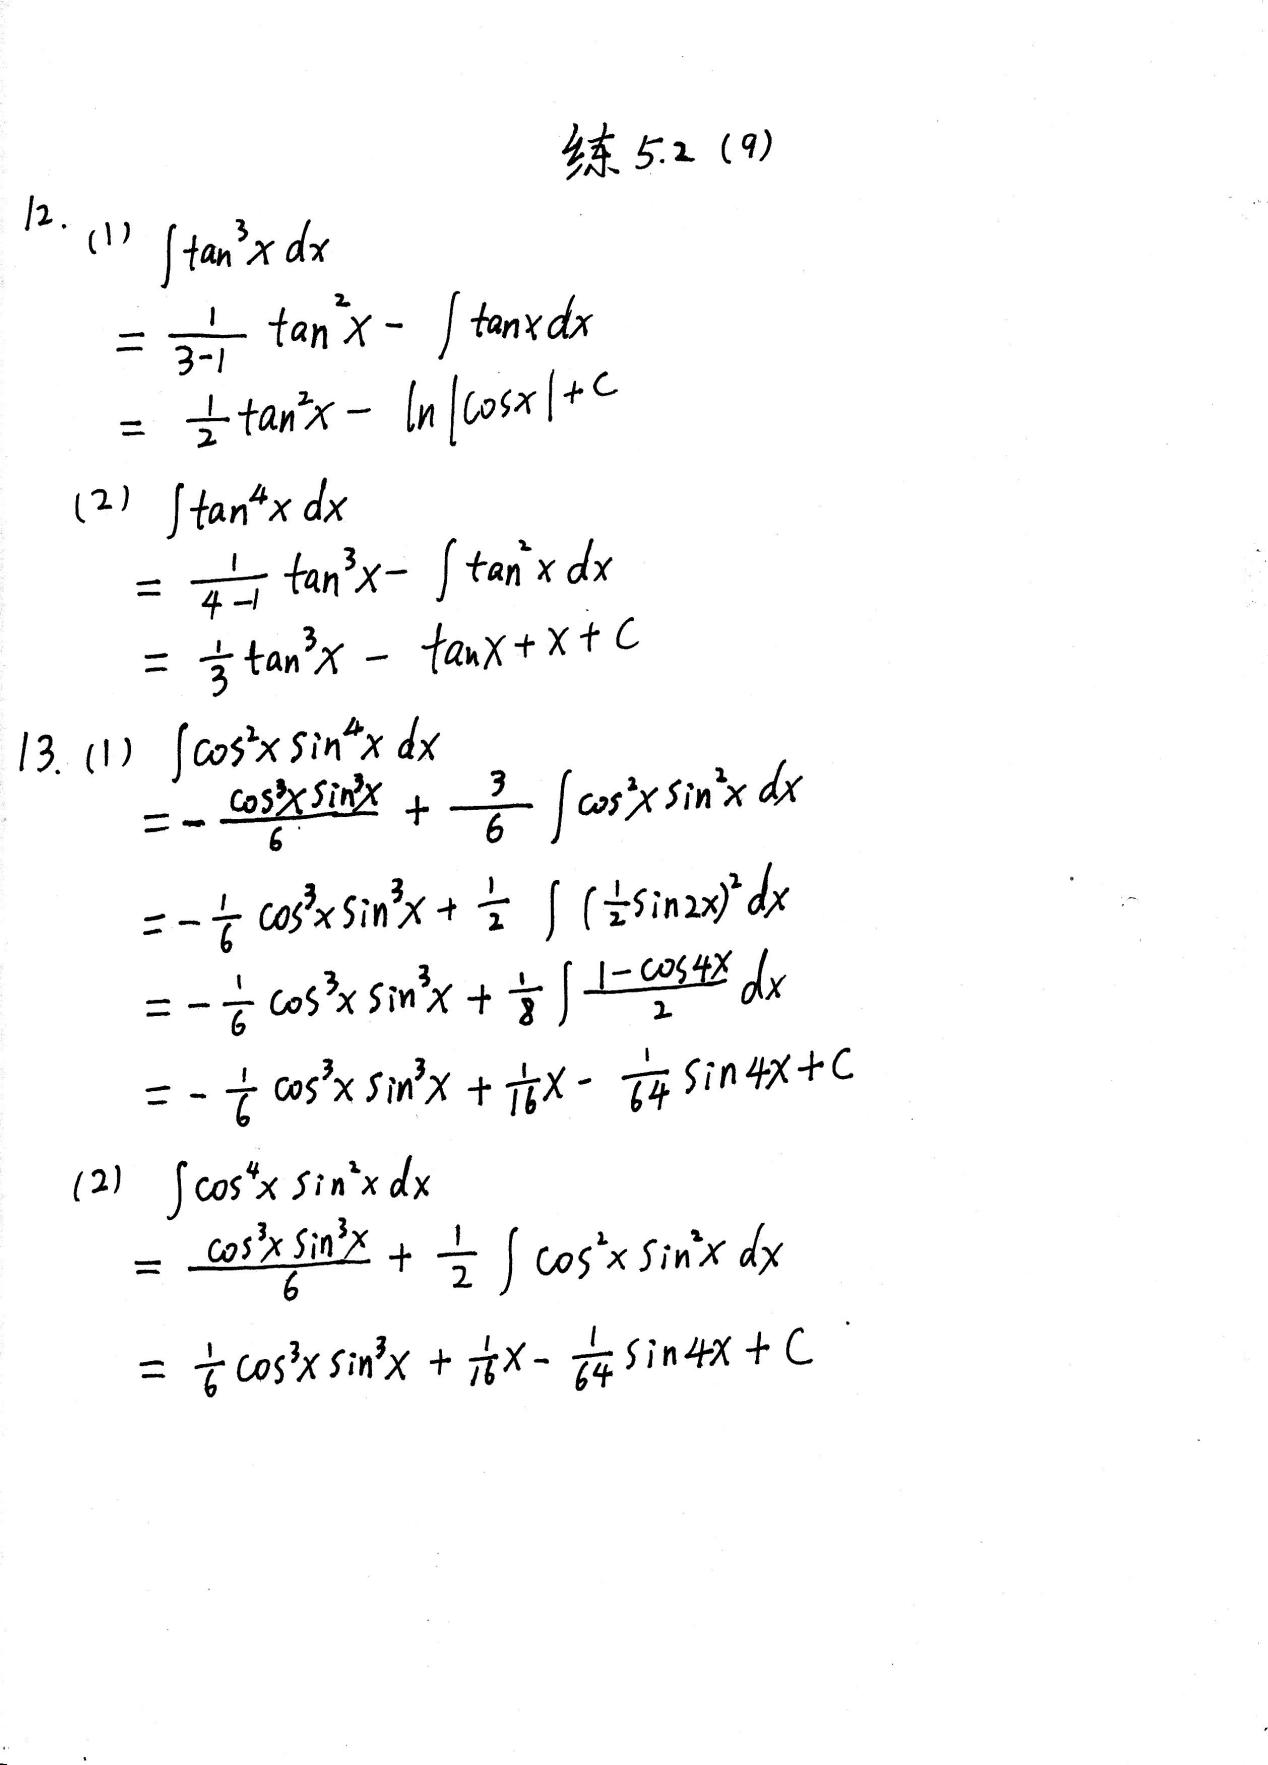 练 5.2 (9)
12. (1) ∫tan³x dx
= 1/(3-1) tan²x - ∫tanx dx
= 1/2 tan²x - ln|cosx|+C
(2) ∫tan⁴x dx
= 1/(4-1) tan³x - ∫tan²x dx
= 1/3 tan³x - tanx+x+C
13. (1) ∫cos²x sin⁴x dx
= - cos³x sin³x/6 + 3/6 ∫cos²x sin²x dx
= - 1/6 cos³x sin³x + 1/2 ∫(1/2 sin2x)² dx
= - 1/6 cos³x sin³x + 1/8 ∫ (1-cos4x)/2 dx
= - 1/6 cos³x sin³x + 1/16 x - 1/64 sin4x+C
(2) ∫cos⁴x sin²x dx
= cos³x sin³x/6 + 1/2 ∫cos²x sin²x dx
= 1/6 cos³x sin³x + 1/16 x - 1/64 sin4x + C